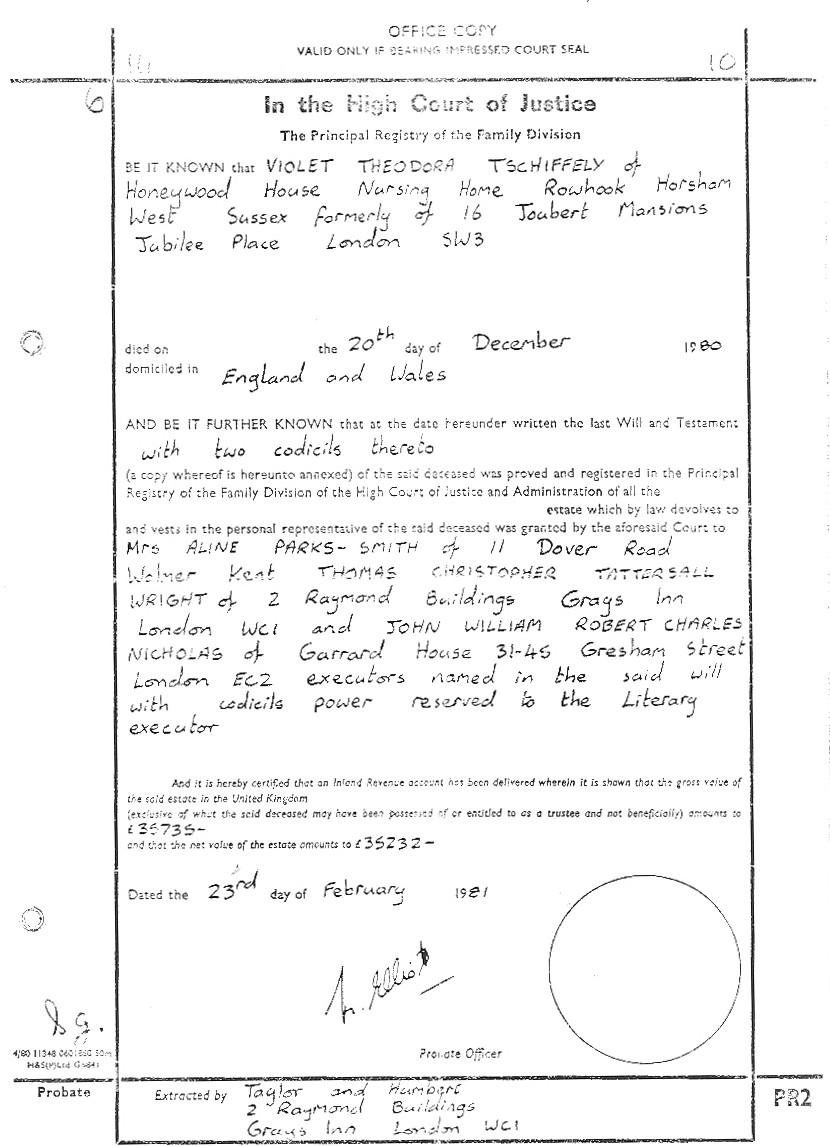 OFFICE COPY
VALID ONLY IF BEARING IMPRESSED COURT SEAL
10
6
In the High Court of Justice
The Principal Registry of the Family Division
BE IT KNOWN that VIOLET THEODORA TSCHIFFELY of
Honeywood House Nursing Home Rowhook Horsham
West Sussex formerly of 16 Joubert Mansions
Jubilee Place London SW3
died on the 20th day of December 1980
domiciled in England and Wales
AND BE IT FURTHER KNOWN that at the date hereunder written the last Will and Testament
with two codicils thereto
(a copy whereof is hereunto annexed) of the said deceased was proved and registered in the Principal
Registry of the Family Division of the High Court of Justice and Administration of all the
estate which by law devolves to
and vests in the personal representative of the said deceased was granted by the aforesaid Court to
Mrs ALINE PARKS-SMITH of 11 Dover Road
Walmer Kent THOMAS CHRISTOPHER TATTERSALL
WRIGHT of 2 Raymond Buildings Grays Inn
London WC1 and JOHN WILLIAM ROBERT CHARLES
NICHOLAS of Garrard House 31-45 Gresham Street
London EC2 executors named in the said will
with codicils power reserved to the Literary
executor
And it is hereby certified that an Inland Revenue account has been delivered wherein it is shown that the gross value of
the said estate in the United Kingdom
(exclusive of what the said deceased may have been possessed of or entitled to as a trustee and not beneficially) amounts to
£35735-
and that the net value of the estate amounts to £35232-
Dated the 23rd day of February 1981
Elliott
Probate Officer
S G.
4/80 11348 50m
H&S(P)Ltd
Probate
Extracted by Taylor and Humbert
2 Raymond Buildings
Grays Inn London WC1
PR2